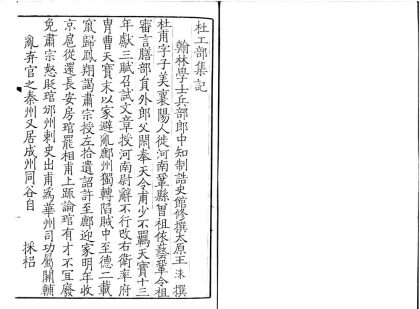 杜工部集記
翰林學士兵部郎中知制誥史館修撰太原王洙撰
杜甫字子美襄陽人徙河南鞏縣曾祖依藝鞏令祖
審言膳部員外郎父閑奉天令甫少不羈天寶十三
年獻三賦召試文章授河南尉辭不行改右衛率府
胄曹天寶末以家避亂鄜州獨轉陷賊中至德二載
竄歸鳳翔謁肅宗授左拾遺詔許至鄜迎家明年收
京扈從還長安房琯罷相甫上疏論琯有才不冝廢
免肅宗怒貶琯邠州刺史出甫爲華州司功屬關輔
亂弃官之秦州又居成州同谷自
採梠